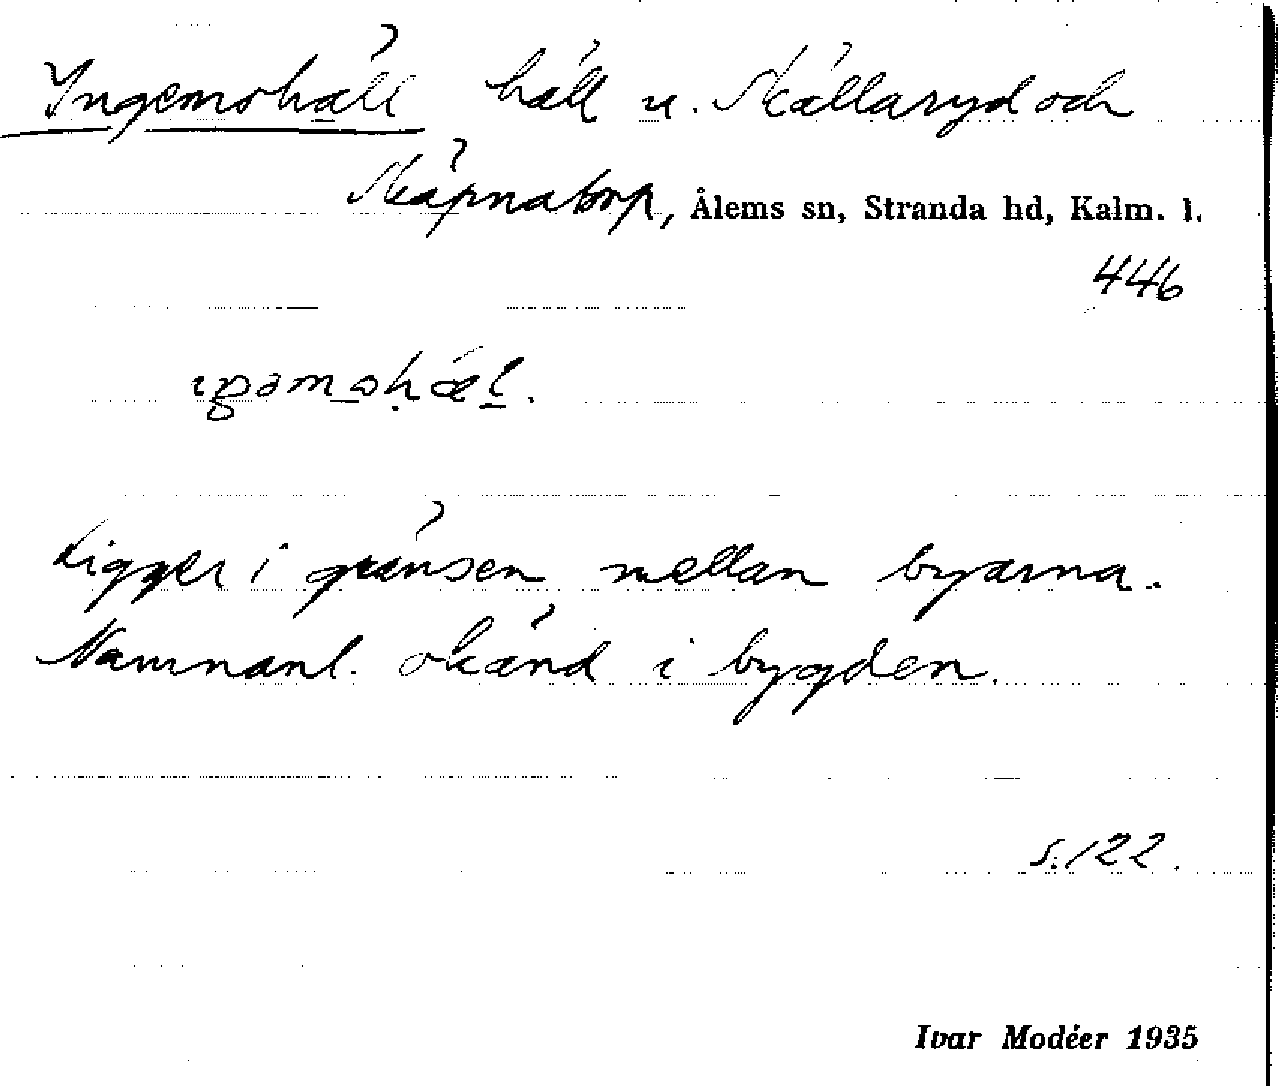 Ingemohäll häll u. Skällaryd och
Skäpnatorp, Ålems sn, Stranda hd, Kalm. l.
446
Ligger i gränsen mellan byarna.
Namnanl. okänd i bygden.
s. 122.
Ivar Modéer 1935